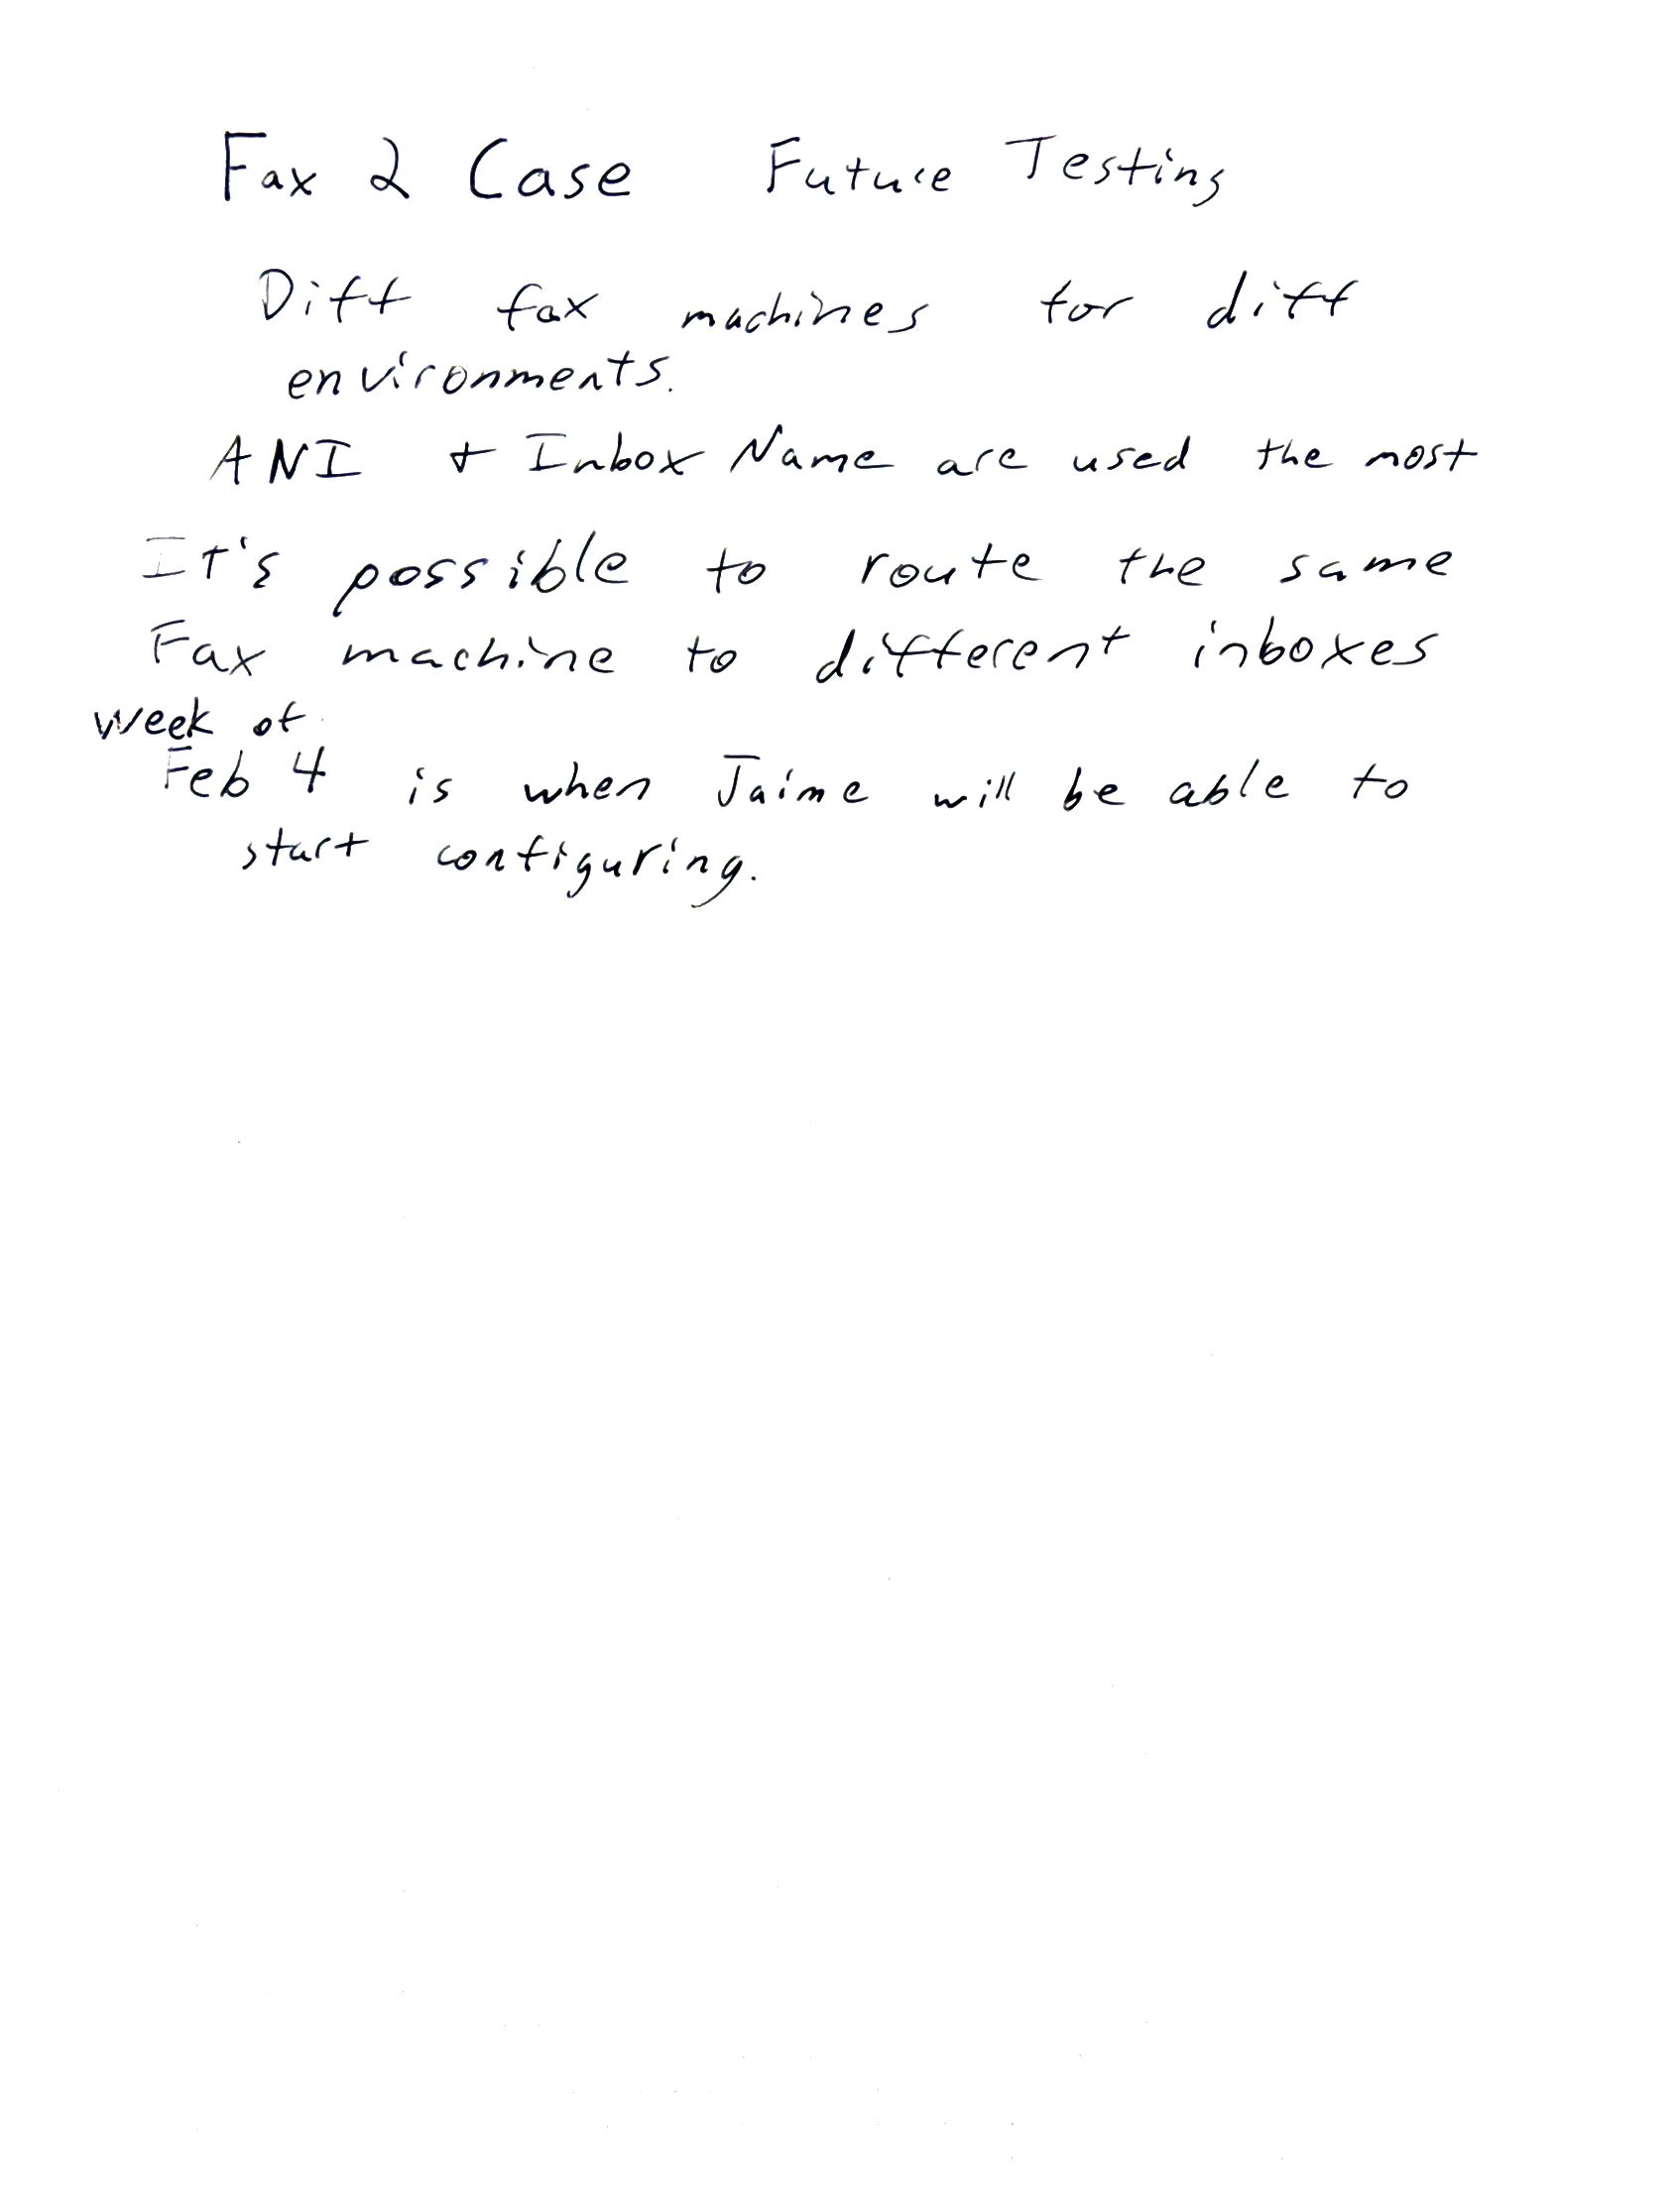 Fax 2 Case Future Testing
Diff fax machines for diff
environments.
ANI + Inbox Name are used the most
It's possible to route the same
Fax machine to different inboxes
week of
Feb 4 is when Jaime will be able to
start configuring.